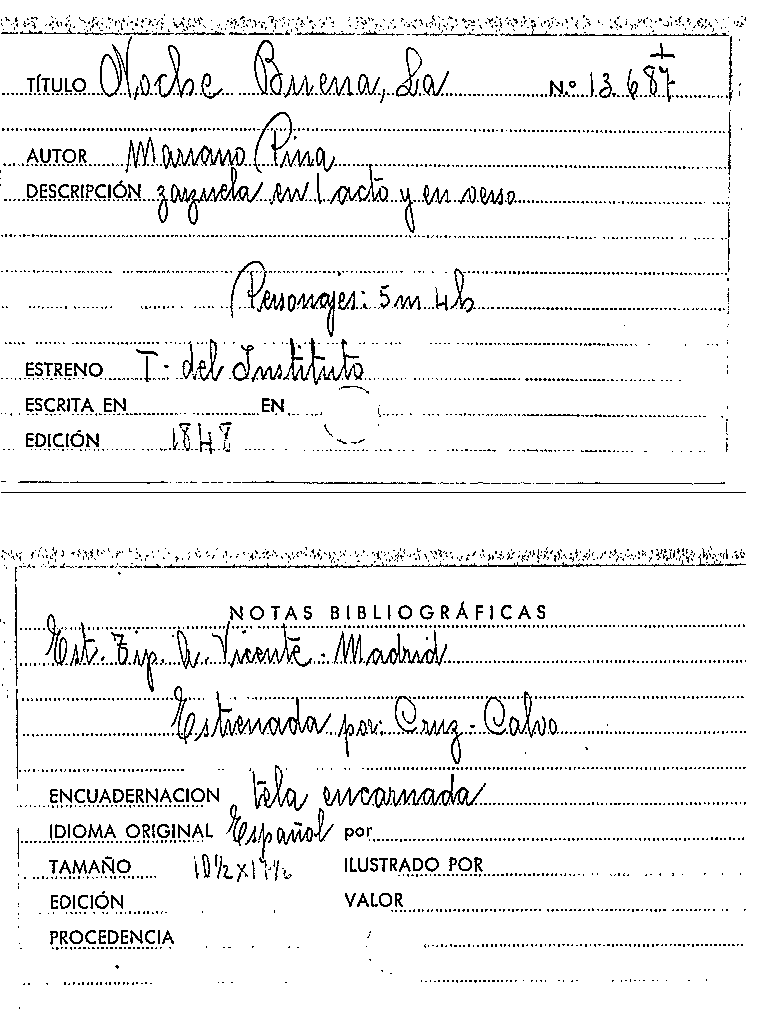 TÍTULO Noche Buena, La N.º 13.687
AUTOR Mariano Pina
DESCRIPCIÓN zarzuela en 1 acto y en verso
Personajes: 5 m 4 h
ESTRENO T. del Instituto
ESCRITA EN EN
EDICIÓN 1848
NOTAS BIBLIOGRÁFICAS
Est. Tip. A. Vicente. Madrid
Estrenada por: Cruz - Calvo
ENCUADERNACION tela encarnada
IDIOMA ORIGINAL Español por
TAMAÑO 10½ x 17½ ILUSTRADO POR
EDICIÓN VALOR
PROCEDENCIA